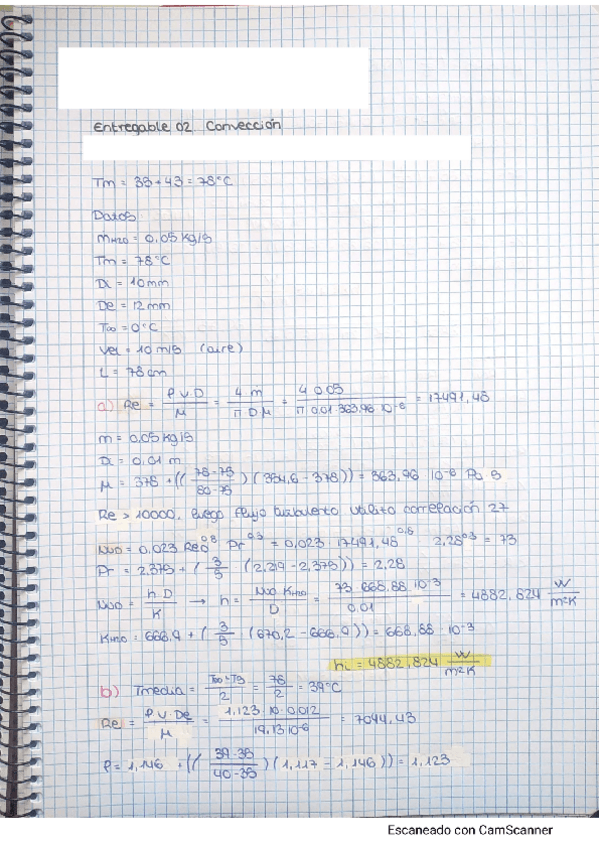 Entregable 02 Convección
Tm = 39 + 43 = 78°C
Datos
mH2O = 0,05 kg/s
Tm = 78°C
Di = 10mm
De = 12mm
T∞ = 0°C
Vel = 10 m/s (aire)
L = 78 cm
a) Re = ρ v D / μ = 4 m / π D μ = 4 0,05 / π 0,01 363,96 10⁻⁶ = 17491,48
m = 0,05 kg/s
Di = 0,01 m
μ = 378 + ((78-75 / 80-75) (354,6 - 378)) = 363,96 10⁻⁶ Pa s
Re > 10000, luego flujo turbulento utilizo correlación 27
NuD = 0,023 ReD^0,8 Pr^0,3 = 0,023 17491,48^0,8 2,28^0,3 = 73
Pr = 2,379 + (3/5 (2,219 - 2,379)) = 2,28
NuD = h D / K → h = NuD KH2O / D = 73 668,88 10⁻³ / 0,01 = 4882,824 W / m²K
KH2O = 666,9 + (3/5 (670,2 - 666,9)) = 668,88 10⁻³
hi = 4882,824 W / m²K
b) Tmedia = T∞ + Ts / 2 = 78 / 2 = 39°C
Re = ρ v De / μ = 1,123 10 0,012 / 19,13 10⁻⁶ = 7044,43
ρ = 1,146 + ((39-35 / 40-35) (1,117 - 1,146)) = 1,123
Escaneado con CamScanner